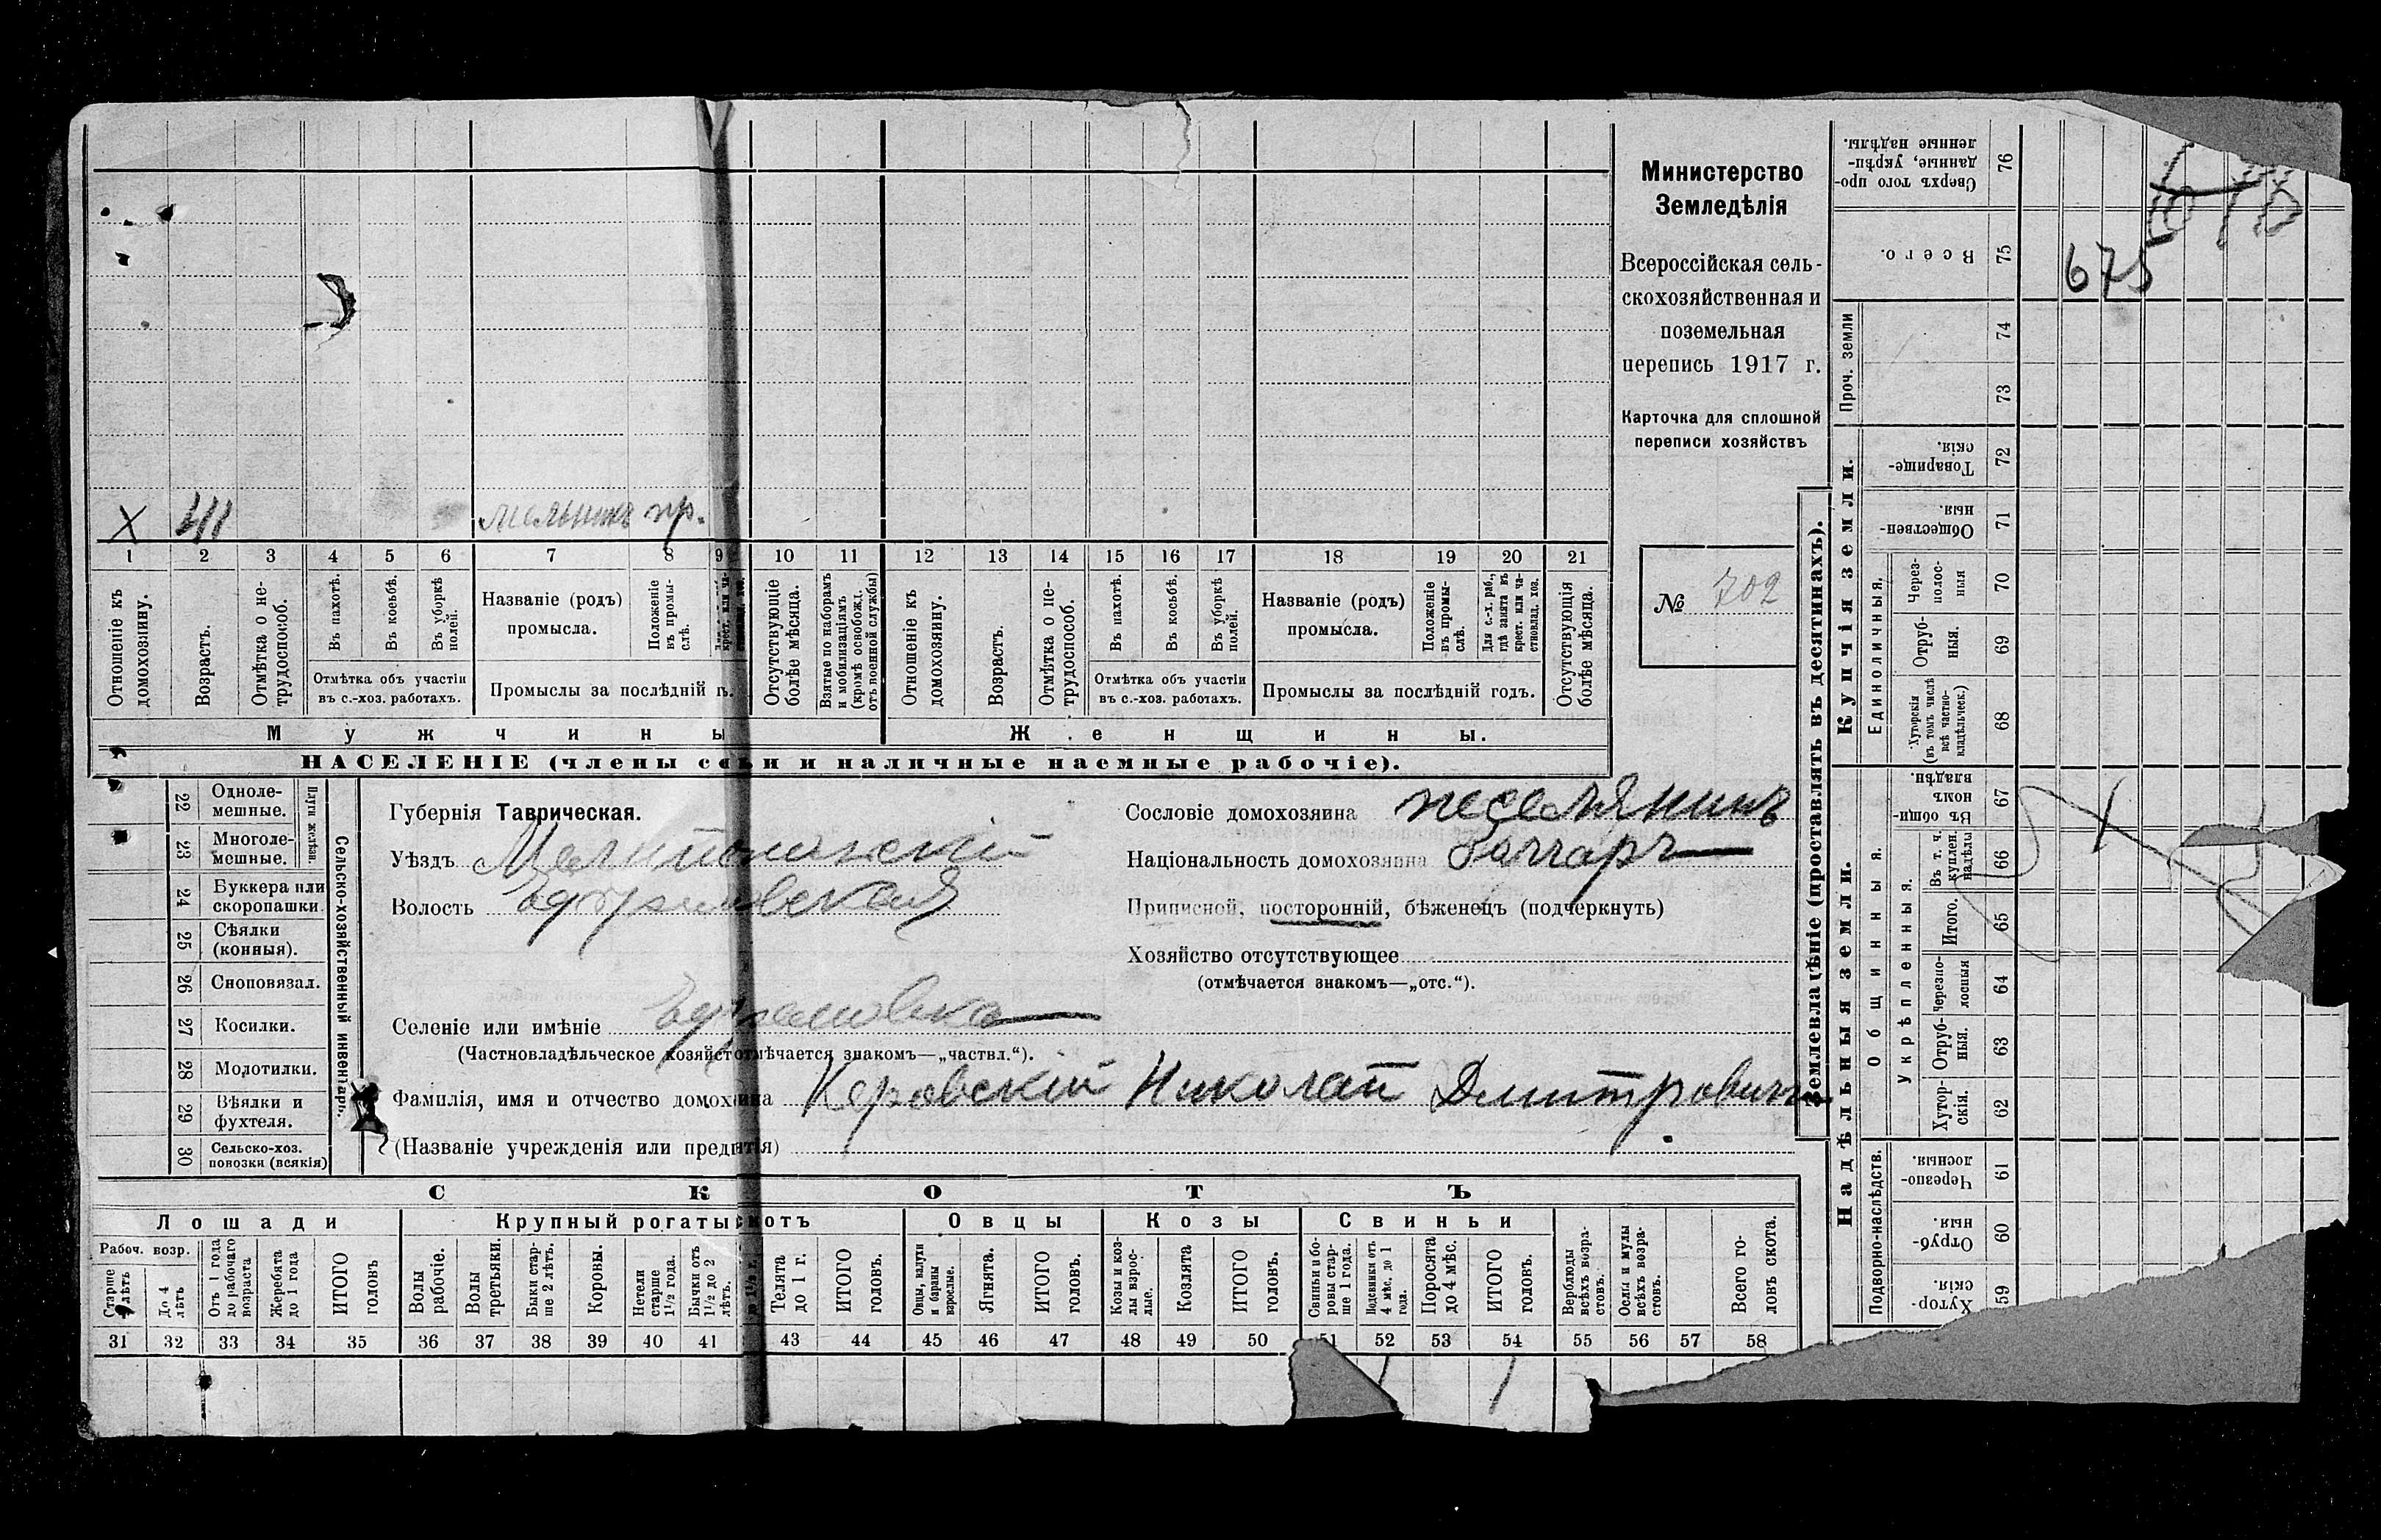 Министерство
Земледѣлія
Всероссійская сель-
скохозяйственная и
поземельная
перепись 1917 г.
Карточка для сплошной
переписи хозяйствъ
№ 702
X
мельникъ пр.
1 2 3 4 5 6 7 8 9 10 11 12 13 14 15 16 17 18 19 20 21
Отношеніе къ домохозяину.
Возрастъ.
Отмѣтка о не-трудоспособ.
Въ пахотѣ.
Въ косьбѣ.
Въ уборкѣ полей.
Отмѣтка объ участіи
въ с.-хоз. работахъ.
Названіе (родъ)
промысла.
Положеніе въ промы-слѣ.
Промыслы за послѣдній г.
Отсутствующіе болѣе мѣсяца.
Взятые по наборамъ и мобилизаціямъ (кромѣ освобожд. отъ военной службы)
Отношеніе къ домохозяину.
Возрастъ.
Отмѣтка о не-трудоспособ.
Въ пахотѣ.
Въ косьбѣ.
Въ уборкѣ полей.
Отмѣтка объ участіи
въ с.-хоз. работахъ.
Названіе (родъ)
промысла.
Положеніе въ промы-слѣ.
Для с.-х. раб., гдѣ занята въ крест. или ча-стновлад. хоз.
Промыслы за послѣдній годъ.
Отсутствующія болѣе мѣсяца.
Мужчины
Женщины.
НАСЕЛЕНІЕ (члены се и и наличные наемные рабочіе).
Сельско-хозяйственный инвентарь.
Плуги желѣзн.
22 Одноле-мешные.
23 Многоле-мешные.
24 Буккера или скоропашки.
25 Сѣялки (конныя).
26 Сноповязал.
27 Косилки.
28 Молотилки.
29 Вѣялки и фухтеля.
30 Сельско-хоз. повозки (всякія)
Губернія Таврическая.
Уѣздъ Мелитопольскій
Волость
Селеніе или имѣніе
(Частновладѣльческое хозяйст отмѣчается знакомъ—„частвл.“).
Фамилія, имя и отчество домох ина Керовскій Николай Дмитровичъ
(Названіе учрежденія или пред тія)
Сословіе домохозяина поселянинъ
Національность домохозяина болгаръ
Приписной, посторонній, бѣженецъ (подчеркнуть)
Хозяйство отсутствующее
(отмѣчается знакомъ—„отс.“).
СКОТЪ
Лошади
Крупный рогаты скотъ
Овцы
Козы
Свиньи
Рабоч. возр.
Старше 4 лѣтъ
До 4 лѣтъ
Отъ 1 года до рабочаго возраста
Жеребята до 1 года
ИТОГО головъ
Волы рабочіе.
Волы третьяки.
Быки стар-ше 2 лѣтъ.
Коровы.
Нетели старше 1½ года.
Бычки отъ 1½ до 2 лѣтъ.
Телята до 1 г.
ИТОГО головъ.
Овцы, валухи и бараны взрослые.
Ягнята.
ИТОГО головъ.
Козы и коз-лы взрос-лые.
Козлята
ИТОГО головъ.
Свиньи и бо-ровы стар-ше 1 года.
Подсвинки отъ 4 мѣс. до 1 года.
Поросята до 4 мѣс.
ИТОГО головъ.
Верблюды всѣхъ возра-стовъ.
Ослы и мулы всѣхъ возра-стовъ.
Всего го-ловъ скота.
31 32 33 34 35 36 37 38 39 40 41 43 44 45 46 47 48 49 50 51 52 53 54 55 56 57 58
1
Землевладѣніе (проставлять въ десятинахъ).
Купчія земли.
Надѣльныя земли.
Проч. земли
Единоличныя.
Общинныя.
Укрѣпленныя.
Подворно-наслѣдств.
76 Сверхъ того про-данные, укрѣп-ленные надѣлы.
75 Всего.
675
74
73
72 Товарище-скія.
71 Обществен-ныя.
70 Через-полос-ныя
69 Отруб-ныя.
68 Хуторскія (въ томъ числѣ всѣ частно-владѣльческ.)
67 Въ общин-номъ владѣн.
66 Въ т. ч. куплен. надѣлы
65 Итого.
64 Черезпо-лосныя
63 Отруб-ныя.
62 Хутор-скія.
61 Черезпо-лосныя.
60 Отруб-ныя.
59 Хутор-скія.